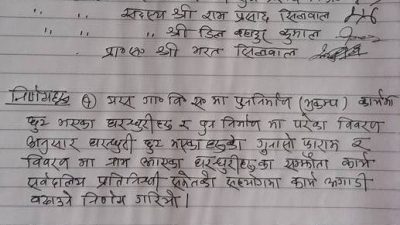 " " सदस्य श्री राम प्रसाद सिलवाल
" " " श्री डिल बहादुर कुमाल
प्रा०स० श्री भरत सिलवाल
निर्णयहरु (१) यस गा० वि० स० मा पुननिर्माण (भुकम्प) कार्यमा
छुट भएका घरधुरीहरु र पुन निर्माण मा परेका विवरण
अनुसार घरधुरी छुट भएका हरुको गुनासो फाराम र
विवरण मा नाम आएका घरधुरीहरुका सम्झौता कार्य
सर्वदलिय प्रतिनिधी समेतको सहयोगमा कार्य अगाडी
बढाउने निर्णय गरियो।